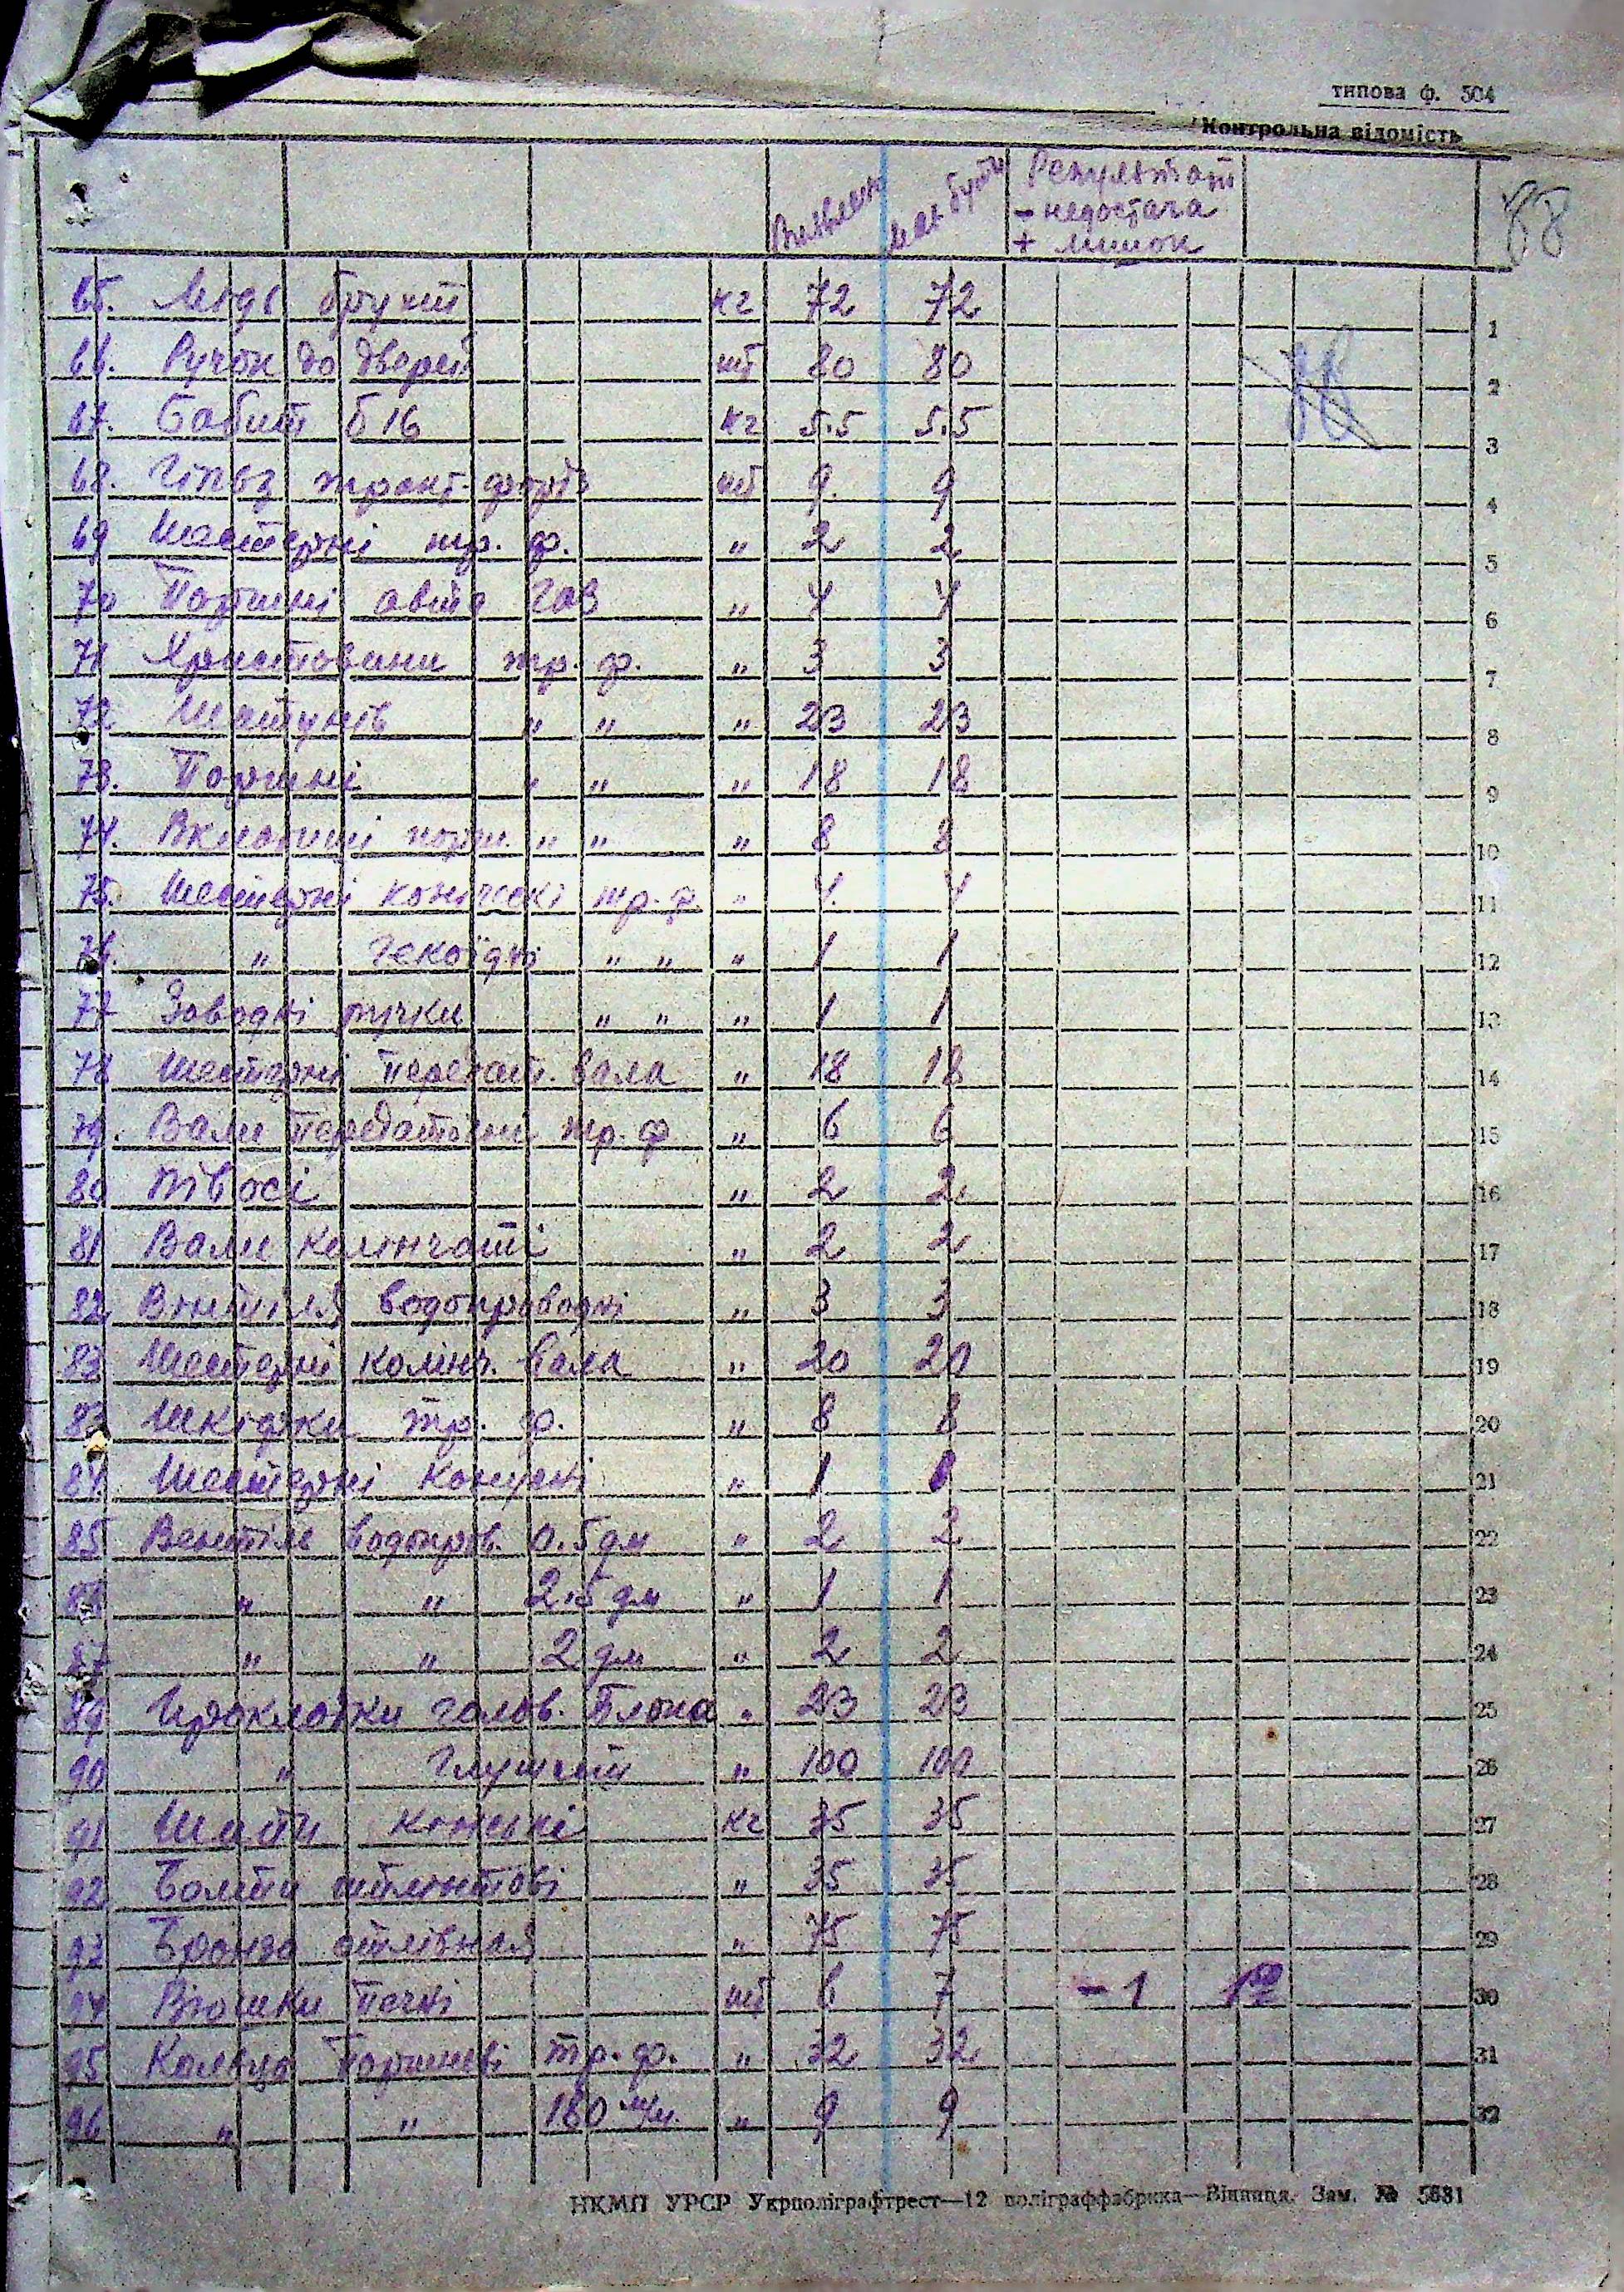 типова ф. 504
Контрольна відомість
Виявлено має бути Результат
- недостача
+ лишок
88
65. Мідь брухт кг 72 72 1
66. Ручок до дверей шт 80 80 2
88
67. Бабит Б 16 кг 5.5 5.5 3
68. Гільз тракт. форд шт 9 9 4
69 Шестерні тр. ф. " 2 2 5
70 Поршні авто ГАЗ " 4 4 6
71 Христовини тр. ф. " 3 3 7
72 Шатунів " " " 23 23 8
73. Поршні " " " 18 18 9
74. Вкладиші " " " 8 8 10
75. Шестерні коніческі тр. ф. " 4 4 11
76. " " " " 1 1 12
77 Заводні ручки " " " 1 1 13
78 Шестерні передат. вала " 18 18 14
79. Вали передаточні тр. ф " 6 6 15
80 Півосі " 2 2 16
81 Вали колінчаті " 2 2 17
82 водопроводні " 3 3 18
83 Шестерні колінч. вала " 20 20 19
83 тр. ф. " 8 8 20
84 Шестерні конусні " 1 1 21
85 Вентіля водопров. 0.5 дм " 2 2 22
" " 2.5 дм " 1 1 23
87 " " 2 дм " 2 2 24
89 Прокладки голов. блока " 23 23 25
90 " Глушит " 100 100 26
91 кг 35 35 27
92 Болти " 35 35 28
93 Бронза отлівная " 75 75 29
94 Вюшки печні шт 6 7 - 1 1 50 30
95 Кольца поршневі тр. ф. " 32 32 31
96 " " 180 м/м. " 9 9 32
НКМП УРСР Укрполіграфтрест—12 поліграффабрика—Вінниця. Зам. № 5631